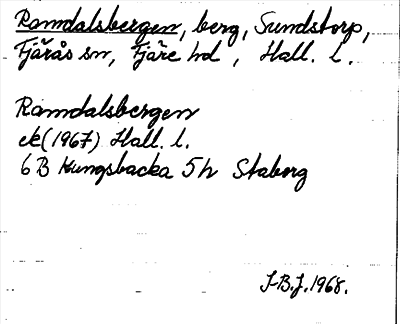 Ramdalsbergen, berg, Sundstorp,
Fjärås sn, Fjäre hd, Hall. l.
Ramdalsbergen
ek (1967) Hall. l.
6 B Kungsbacka 5 h Staborg
J-B.J. 1968.